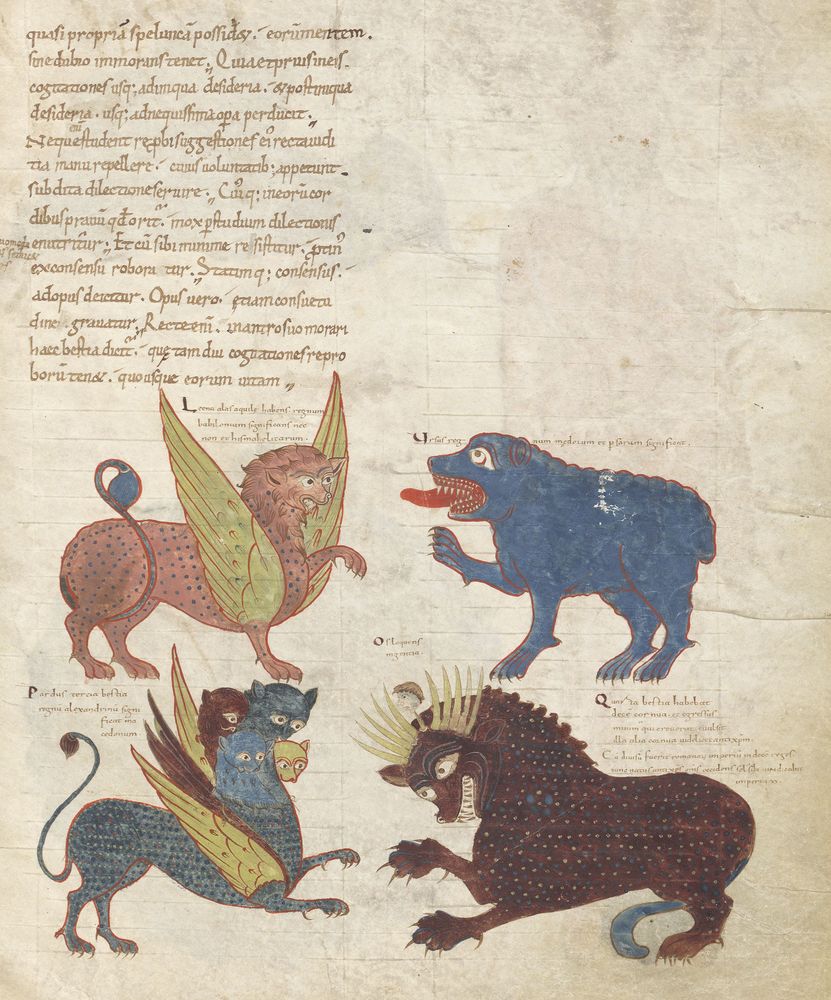 quasi propriā speluncā possid&. eorū mentem.
sine dubio inmorans tenet. Quia et prius in eis.
cogitationes usq; ad iniqua desideria. & post iniqua
desideria. usq; ad nequissima opa perducit.
Neque student reprobi suggestiones ei recta iudi
tia manu repellere. cuius voluntatib; appetunt
subdita dilectione servire. Cūq; in eorū cor
dibus pravū qd orit. mox p studium dilectionis
enutritur; Et cū sibi minime resistitur. ptin
ex consensu roboratur. Statimq; consensus.
ad opus deicitur. Opus vero. etiam consuetu
dine. gravatur; Recte eni. in antro suo morari
haec bestia dicit. que tam diu cogitationes repro
borū ten&. quousque eorum vitam
Leena alas aquile habens. regnum
babilonium significans nec
non et hismahelitarum.
Ursus regnum medorum et psarum significat.
Os loquens
ingentia.
Pardus tercia bestia
regnū alexandrinū signi
ficat ma
cedonum
Quarta bestia habebat
dece cornua. et egressus
illa alia cornua